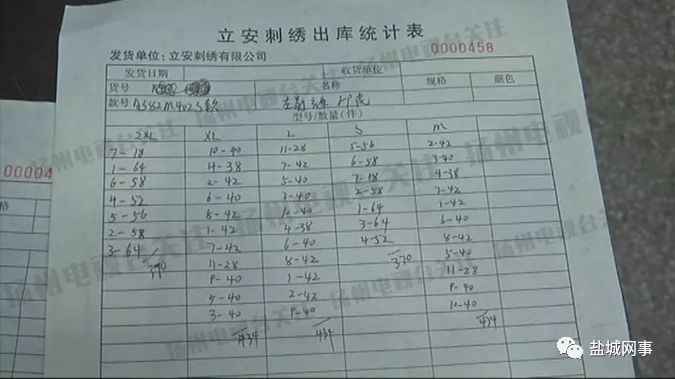 立安刺绣出库统计表
发货单位：立安刺绣有限公司 0000458
发货日期 收货单位
货号 名称 规格 颜色
款号
型号/数量(件)
2XL XL L S m
7-18 10-40 11-28 5-56 2-42
1-64 4-38 7-42 6-58 3-40
6-58 2-42 5-40 7-18 4-38
4-52 6-40 3-40 2-58 7-42
5-56 8-42 10-40 1-64 1-42
2-58 1-42 4-38 3-64 6-40
3-64 7-42 6-40 4-52 8-42
370 11-28 8-42 370 5-40
9-40 1-42 11-28
5-40 2-42 9-40
3-40 9-40 10-40
434 434 434
00004
格
扬州电视台关注
盐城网事